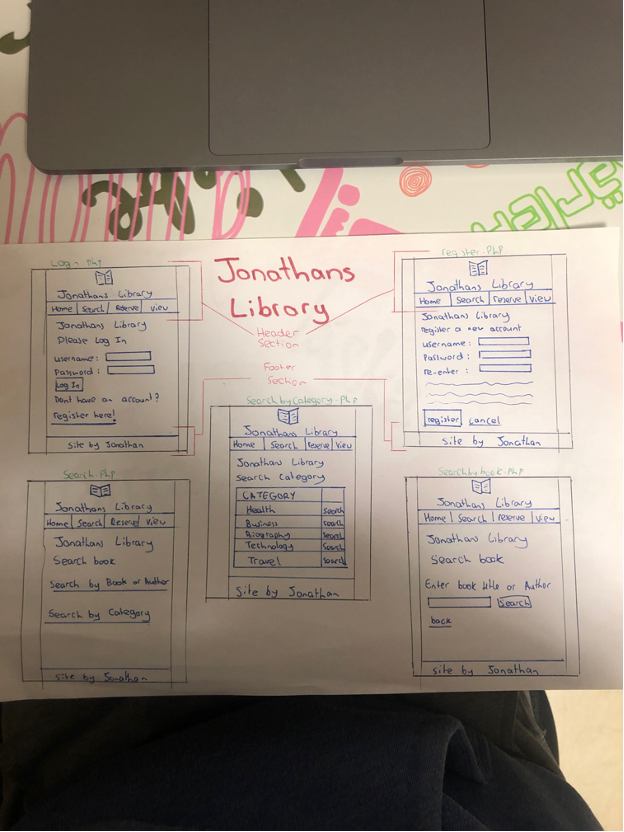 Jonathans
Library
Header
Section
Footer
Section
Login.PhP
Jonathans Library
Home Search Reserve View
Jonathans Library
Please Log In
username:
Password:
Log In
Dont have an account?
register here!
site by Jonathan
register.PhP
Jonathans Library
Home Search Reserve View
Jonathans Library
register a new account
username:
Password:
re-enter:
register cancel
site by Jonathan
SearchbyCategory.PhP
Jonathans Library
Home Search Reserve View
Jonathans Library
Search Category
CATEGORY
Health Search
Business Search
Biography Search
Technology Search
Travel Search
Site by Jonathan
Search.PhP
Jonathans Library
Home Search Reserve View
Jonathans Library
Search book
Search by Book or Author
Search by Category
site by Jonathan
Searchbybook.PhP
Jonathans Library
Home Search Reserve View
Jonathans Library
Search book
Enter book title or Author
Search
back
site by Jonathan